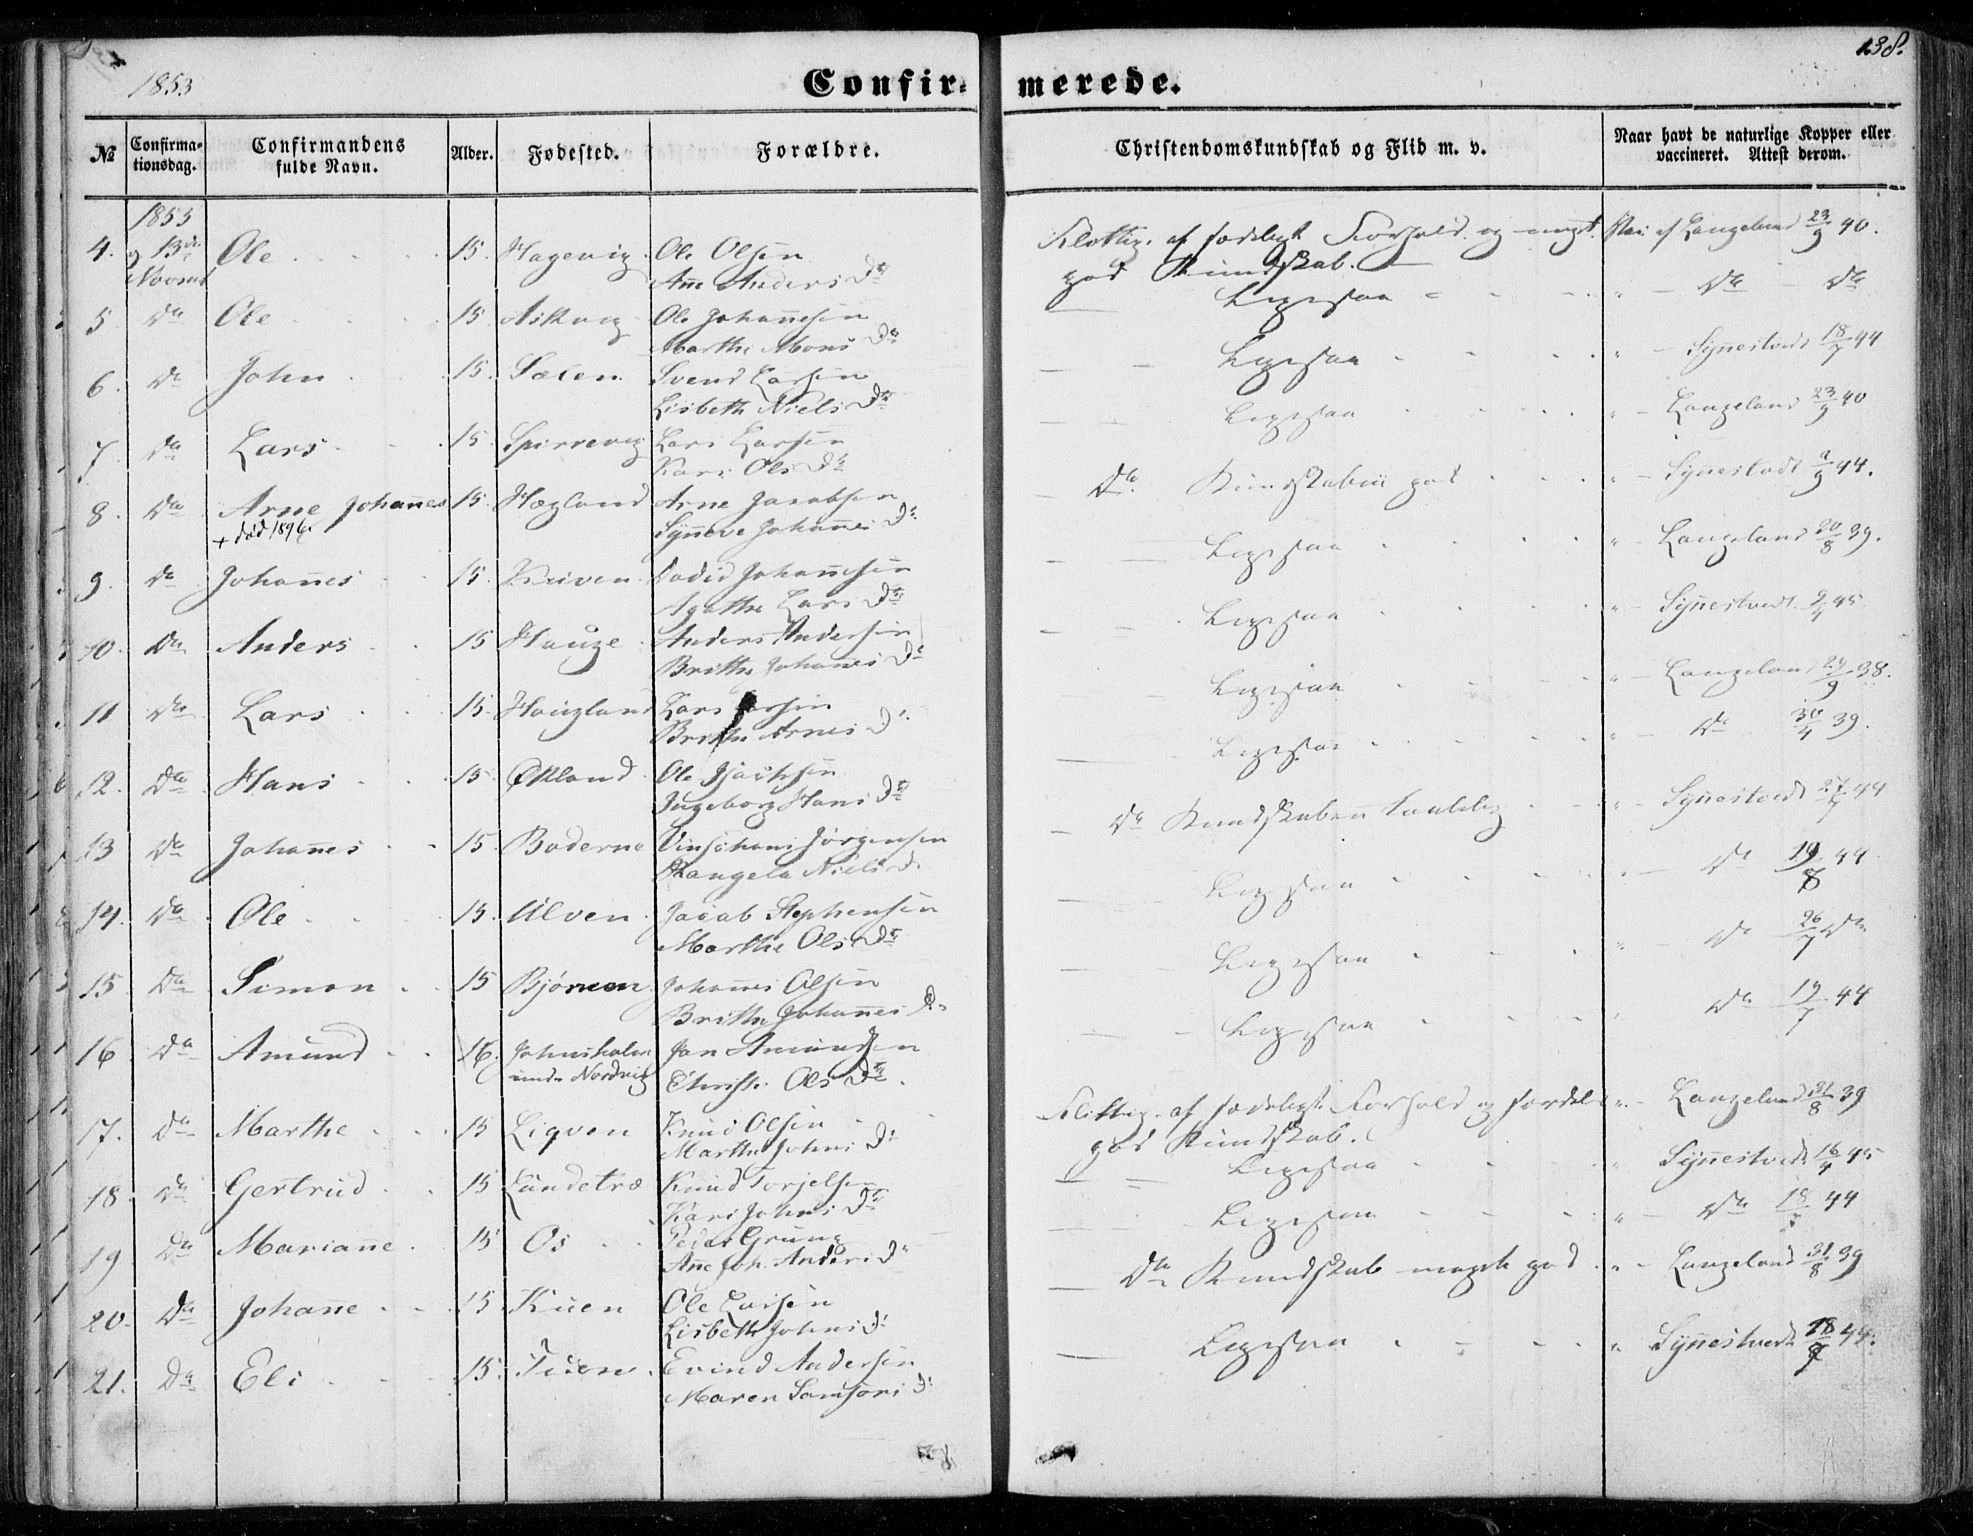 1853
Confir= merede.
138.
№ Confirma=tionsdag. Confirmandens fulde Navn. Alder. Fødested. Forældre. Christendomskundskab og Flid m. v. Naar havt de naturlige Kopper eller vaccineret. Attest derom.
1853
4. 13de Ole 15. Hagevig Ole Olsen af sædeligt Forhold og meget af Langeland 23/9 40.
Anne Anders Dr god Kundskab.
5 Do Ole 15. Askvig Ole Johannesen Ligesaa Do Do
Marthe Mons Dr
6. Do John 15. Sælen Svend Larsen Ligesaa Synestvedt 18/7 44
Lisbeth Niels Dr
7. Do Lars 15 Spirrevig Lars Larsen Ligesaa Langeland 23/9 40
Kari Ols Dr
8. Do Arne Johannes 15. Hegland Arne Jacobsen Do Kundskaben god Synestvedt 44.
+ død 1896. Synneve Johannes Dr
9. Do Johannes 15. David Johannesen Ligesaa Langeland 20/8 39.
Agathe Lars Dr
10. Do Anders 15 Hauge Anders Andersen Ligesaa Synestvedt 9/4 45
Brithe Johannes Dr
11 Do Lars 15. Haugland Lars Larsen Ligesaa Langeland 24/9 38.
Brithe Arnes Dr
12. Do Hans 15. Økland Ole Ligesaa Do 30/4 39.
Ingeborg Hans Dr
13 Do Johannes 15. Boderne Vinsents Jørgensen Do Kundskaben taalelig Synestvedt 27/7 44
Niels Dr
14. Do Ole 15. Ulven Jacob Stephensen Ligesaa Do 19/8 44
Marthe Ols Dr
15 Do Simon 15 Bjørnen Johannes Olsen Ligesaa Do 26/7 Do
Brithe Johannes Dr
16 Do Amund 16. Johnsholm Jan Amundsen Ligesaa Do 19/7 44
under Nordvig Ols Dr
17. Do Marthe 15 Ligven Knud Olsen Flittig, af sædeligt Forhold og særdeles Langeland 31/8 39
Marthe Johns Dr god Kundskab.
18 Do Gertrud 15 Lundetræ Knud Torjelsen Ligesaa Synestvedt 16/4 45
Kari Johns Dr
19 Do Marianne 15 Os Peder Grung Ligesaa Do 44
Anne Joh. Anders Dr
20. Do Johanne 15 Kuen Ole Larsen Do Kundskab meget god Langeland 31/8 39
Lisbeth Johns Dr
21. Do Eli 15. Tuen Evind Andersen Ligesaa Synestvedt 44.
Maren Samsons Dr